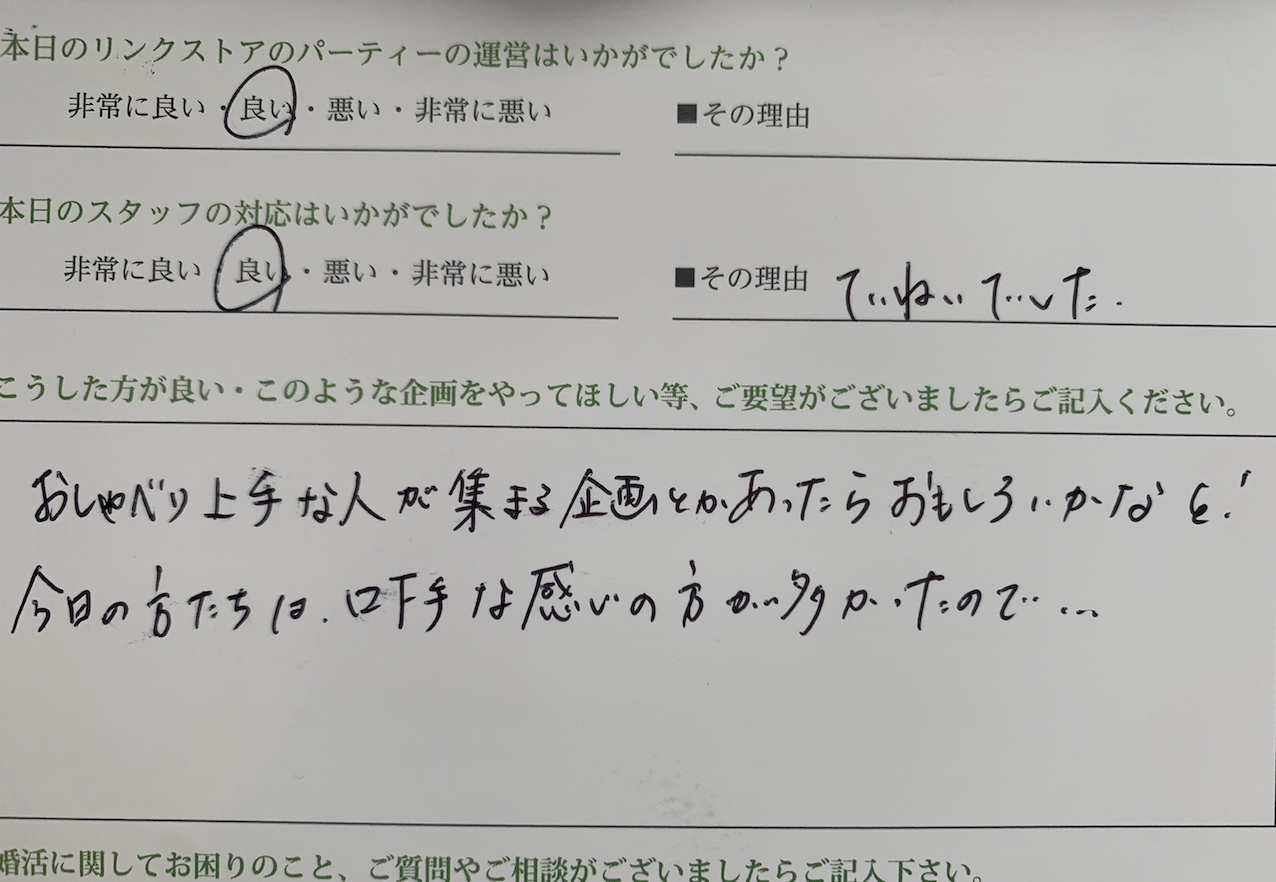 本日のリンクストアのパーティーの運営はいかがでしたか？
非常に良い・良い・悪い・非常に悪い ■その理由
本日のスタッフの対応はいかがでしたか？
非常に良い 良い・悪い・非常に悪い ■その理由 ていねいでした.
こうした方が良い・このような企画をやってほしい等、ご要望がございましたらご記入ください。
おしゃべり上手な人が集まる企画とかあったらおもしろいかなと!
今日の方たちは、口下手な感じの方が多かったので…
婚活に関してお困りのこと、ご質問やご相談がございましたらご記入下さい。